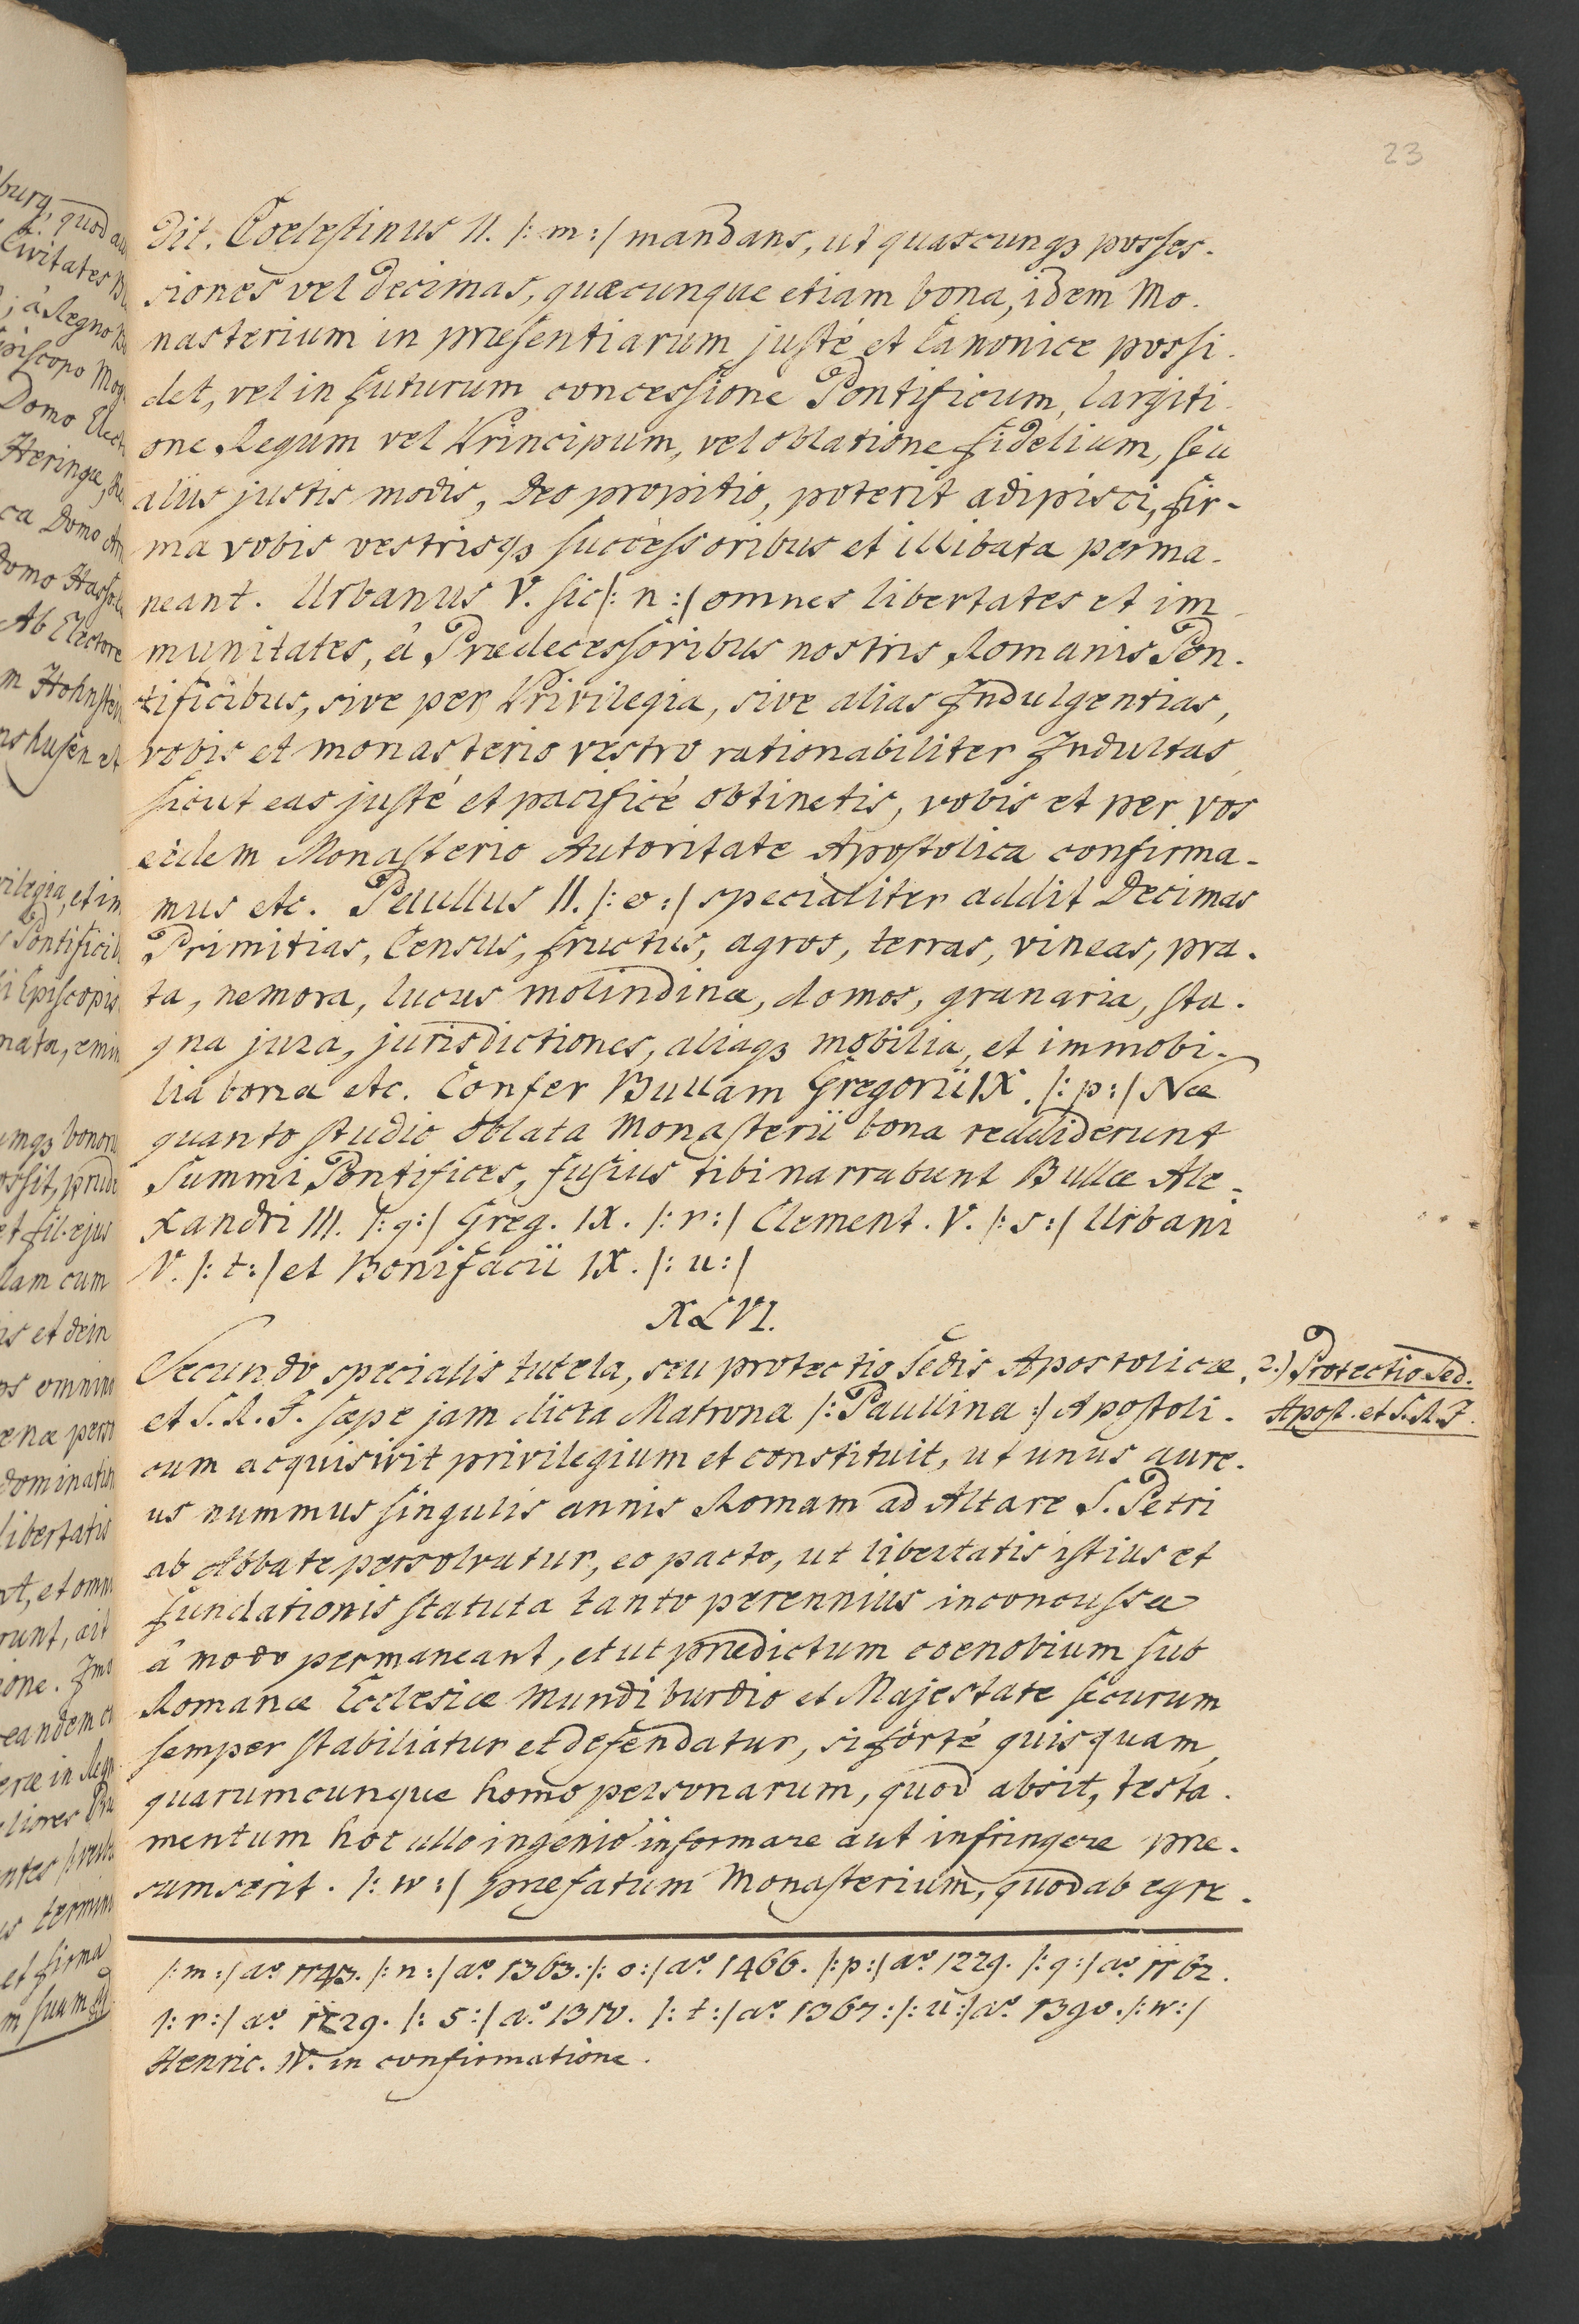 23
dit. Coelestinus II. /: m :/ mandans, ut quascunqꝫ posses-
siones vel decimas, quæcunque etiam bona, idem Mo-
nasterium in præsentiarum justé et Canonice possi-
det, vel in futurum concessione Pontificum, largiti-
one Regum vel Principum, vel oblatione fidelium, seu
aliis justis modis, Deo propitio, poterit adipisci, fir-
ma vobis vestrisqꝫ successoribus et illibata perma-
neant. Urbanus V. sic /: n :/ omnes libertates et im-
munitates, â Prædecessoribus nostris Romanis Pon-
tificibus, sive per Privilegia, sive alias Indulgentias,
vobis et monasterio vestro rationabiliter Indultas,
sicut eas justé et pacificé obtinetis, vobis et per vos
eidem Monasterio Autoritate Apostolica confirma-
mus etc. Paullus II. /: o :/ specialiter addit Decimas
Primitias, Census, fructus, agros, terras, vineas, pra-
ta, nemora, lucus molindina, domos, granaria, sta-
gna jura, jurisdictiones, aliaqꝫ mobilia, et immobi-
lia bona etc. Confer Bullam Gregorii IX. /: p :/ Næ
quanto studio oblata Monasterii bona reddiderunt
Summi Pontifices, fusius tibi narrabunt Bullæ Ale-
xandri III. /: q :/ Greg. IX. /: r :/ Clement. V. /: s :/ Urbani
V. /: t :/ et Bonifacii IX. /: u :/
XLVI.
Secundo specialis tutela, seu protectio Sedis Apostolicæ,
et S. R. I. sæpe jam dicta Matrona /: Paullina :/ Apostoli-
cum acquisivit privilegium et constituit, ut unus aure-
us nummus singulis annis Romam ad Altare S. Petri
ab Abbate persolvatur, eo pacto, ut libertatis istius et
fundationis statuta tanto perennius inconcussa
â modo permaneant, et ut prædictum coenobium sub
Romanæ Ecclesiæ Mundiburdio et Majestate securum
semper stabiliatur et defendatur, si forté quisquam,
quarumcunque homo personarum, quod absit, testa-
mentum hoc ullo ingenio informare aut infringere præ-
sumserit. /: w :/ præfatum Monasterium, quod ab egre-
2.) Protectio Sed.
Apost. et S. R. I.
/: m :/ aº 1143. /: n :/ aº 1363. /: o :/ aº 1466. /: p :/ aº 1229. /: q :/ aº 1162.
/: r :/ aº 1229. /: s :/ aº 1310. /: t :/ aº 1367 : /: u :/ aº 1390. /: w :/
Henric. IV. in confirmatione.